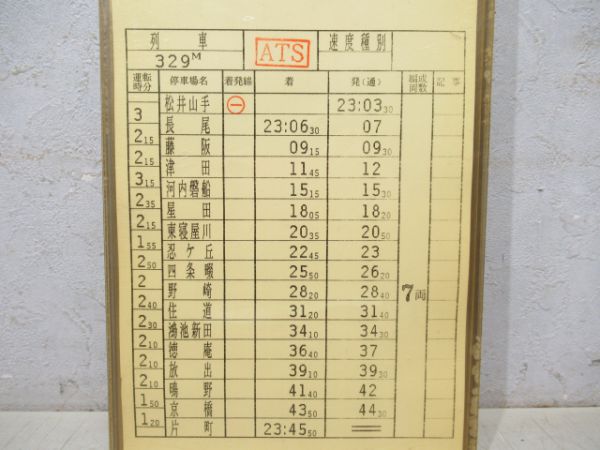 列車 ATS 速度種別
329M
運転時分 停車場名 着発線 着 発(通) 編成両数 記事
松井山手 ㊀ 23:03 30
3
長尾 23:06 30 07
2 15
藤阪 09 15 09 30
2 15
津田 11 45 12
3 15
河内磐船 15 15 15 30
2 35
星田 18 05 18 20
2 15
東寝屋川 20 35 20 50
1 55
忍ケ丘 22 45 23
2 50
四条畷 25 50 26 20
2
野崎 28 20 28 40 7両
2 40
住道 31 20 31 40
2 30
鴻池新田 34 10 34 30
2 10
徳庵 36 40 37
2 10
放出 39 10 39 30
2 10
鴫野 41 40 42
1 50
京橋 43 50 44 30
1 20
片町 23:45 50